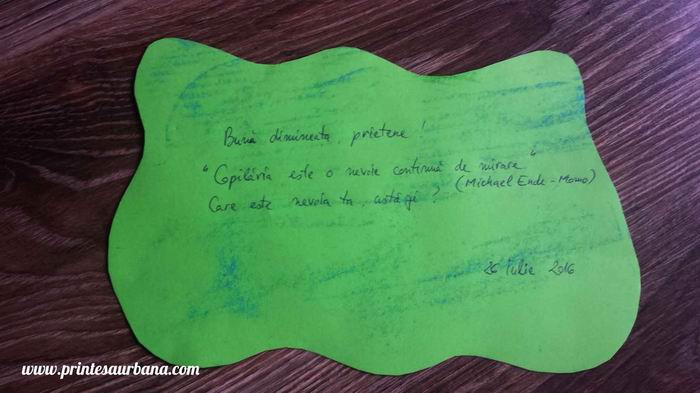 Bună dimineața, prietene!
"Copilăria este o nevoie continuă de mirare"
(Michael Ende - Momo)
Care este nevoia ta, astăzi?
26 iulie 2016
www.printesaurbana.com